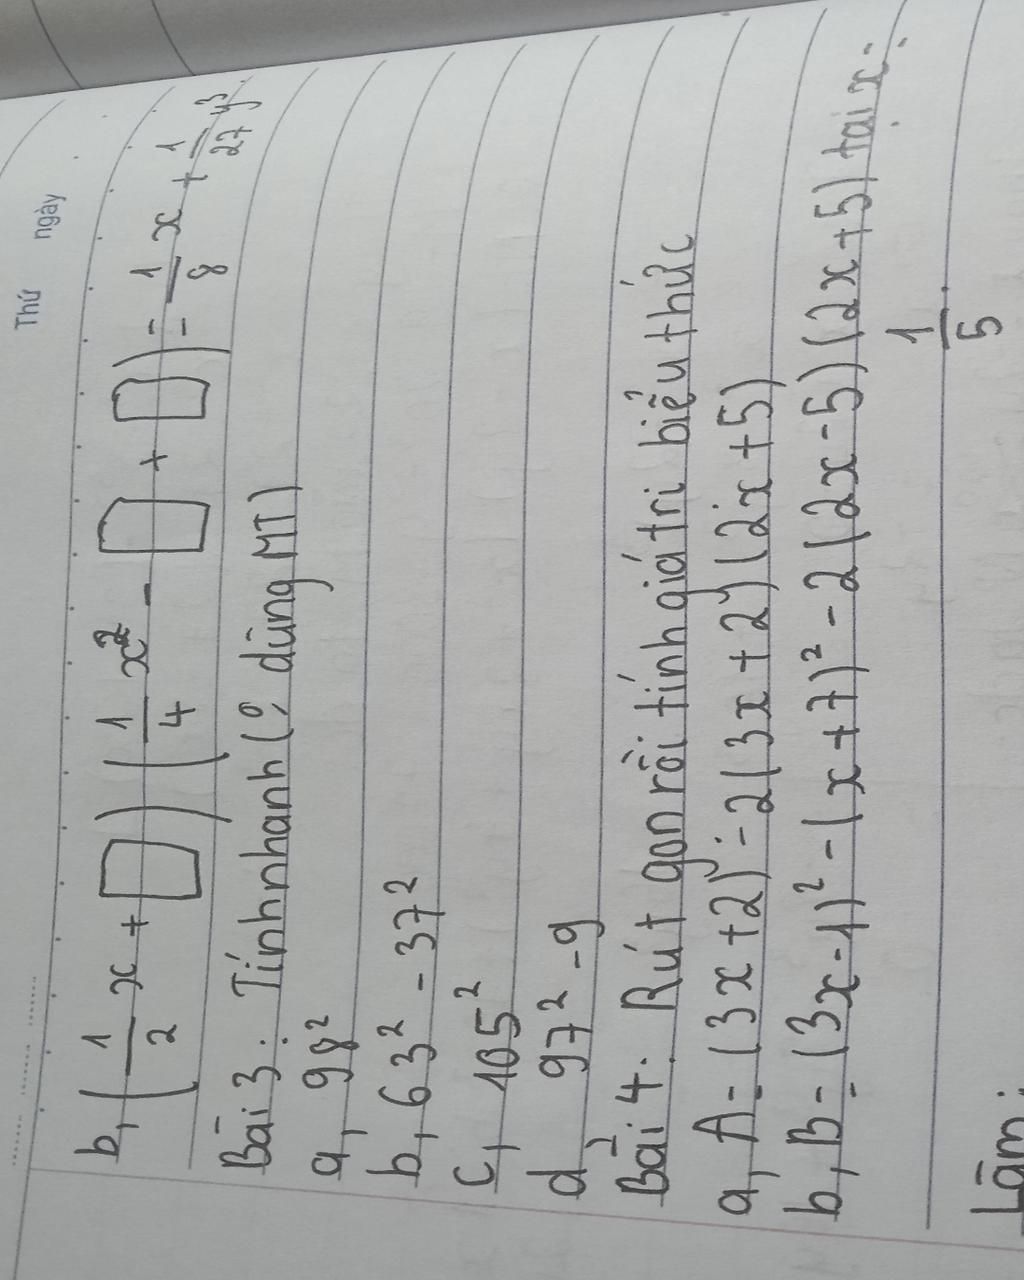 Thứ ngày
b, (1/2 x + □) (1/4 x² - □ + □) = 1/8 x + 1/27 y³
Bài 3: Tính nhanh ( dùng MT)
a, 98²
b, 63² - 37²
c, 105²
d 97² - 9
Bài 4: Rút gọn rồi tính giá trị biểu thức
a, A = (3x + 2)² - 2(3x + 2) (2x + 5)
b, B = (3x - 1)² - (x + 7)² - 2(2x - 5) (2x + 5) tại x =
1/5
Làm: